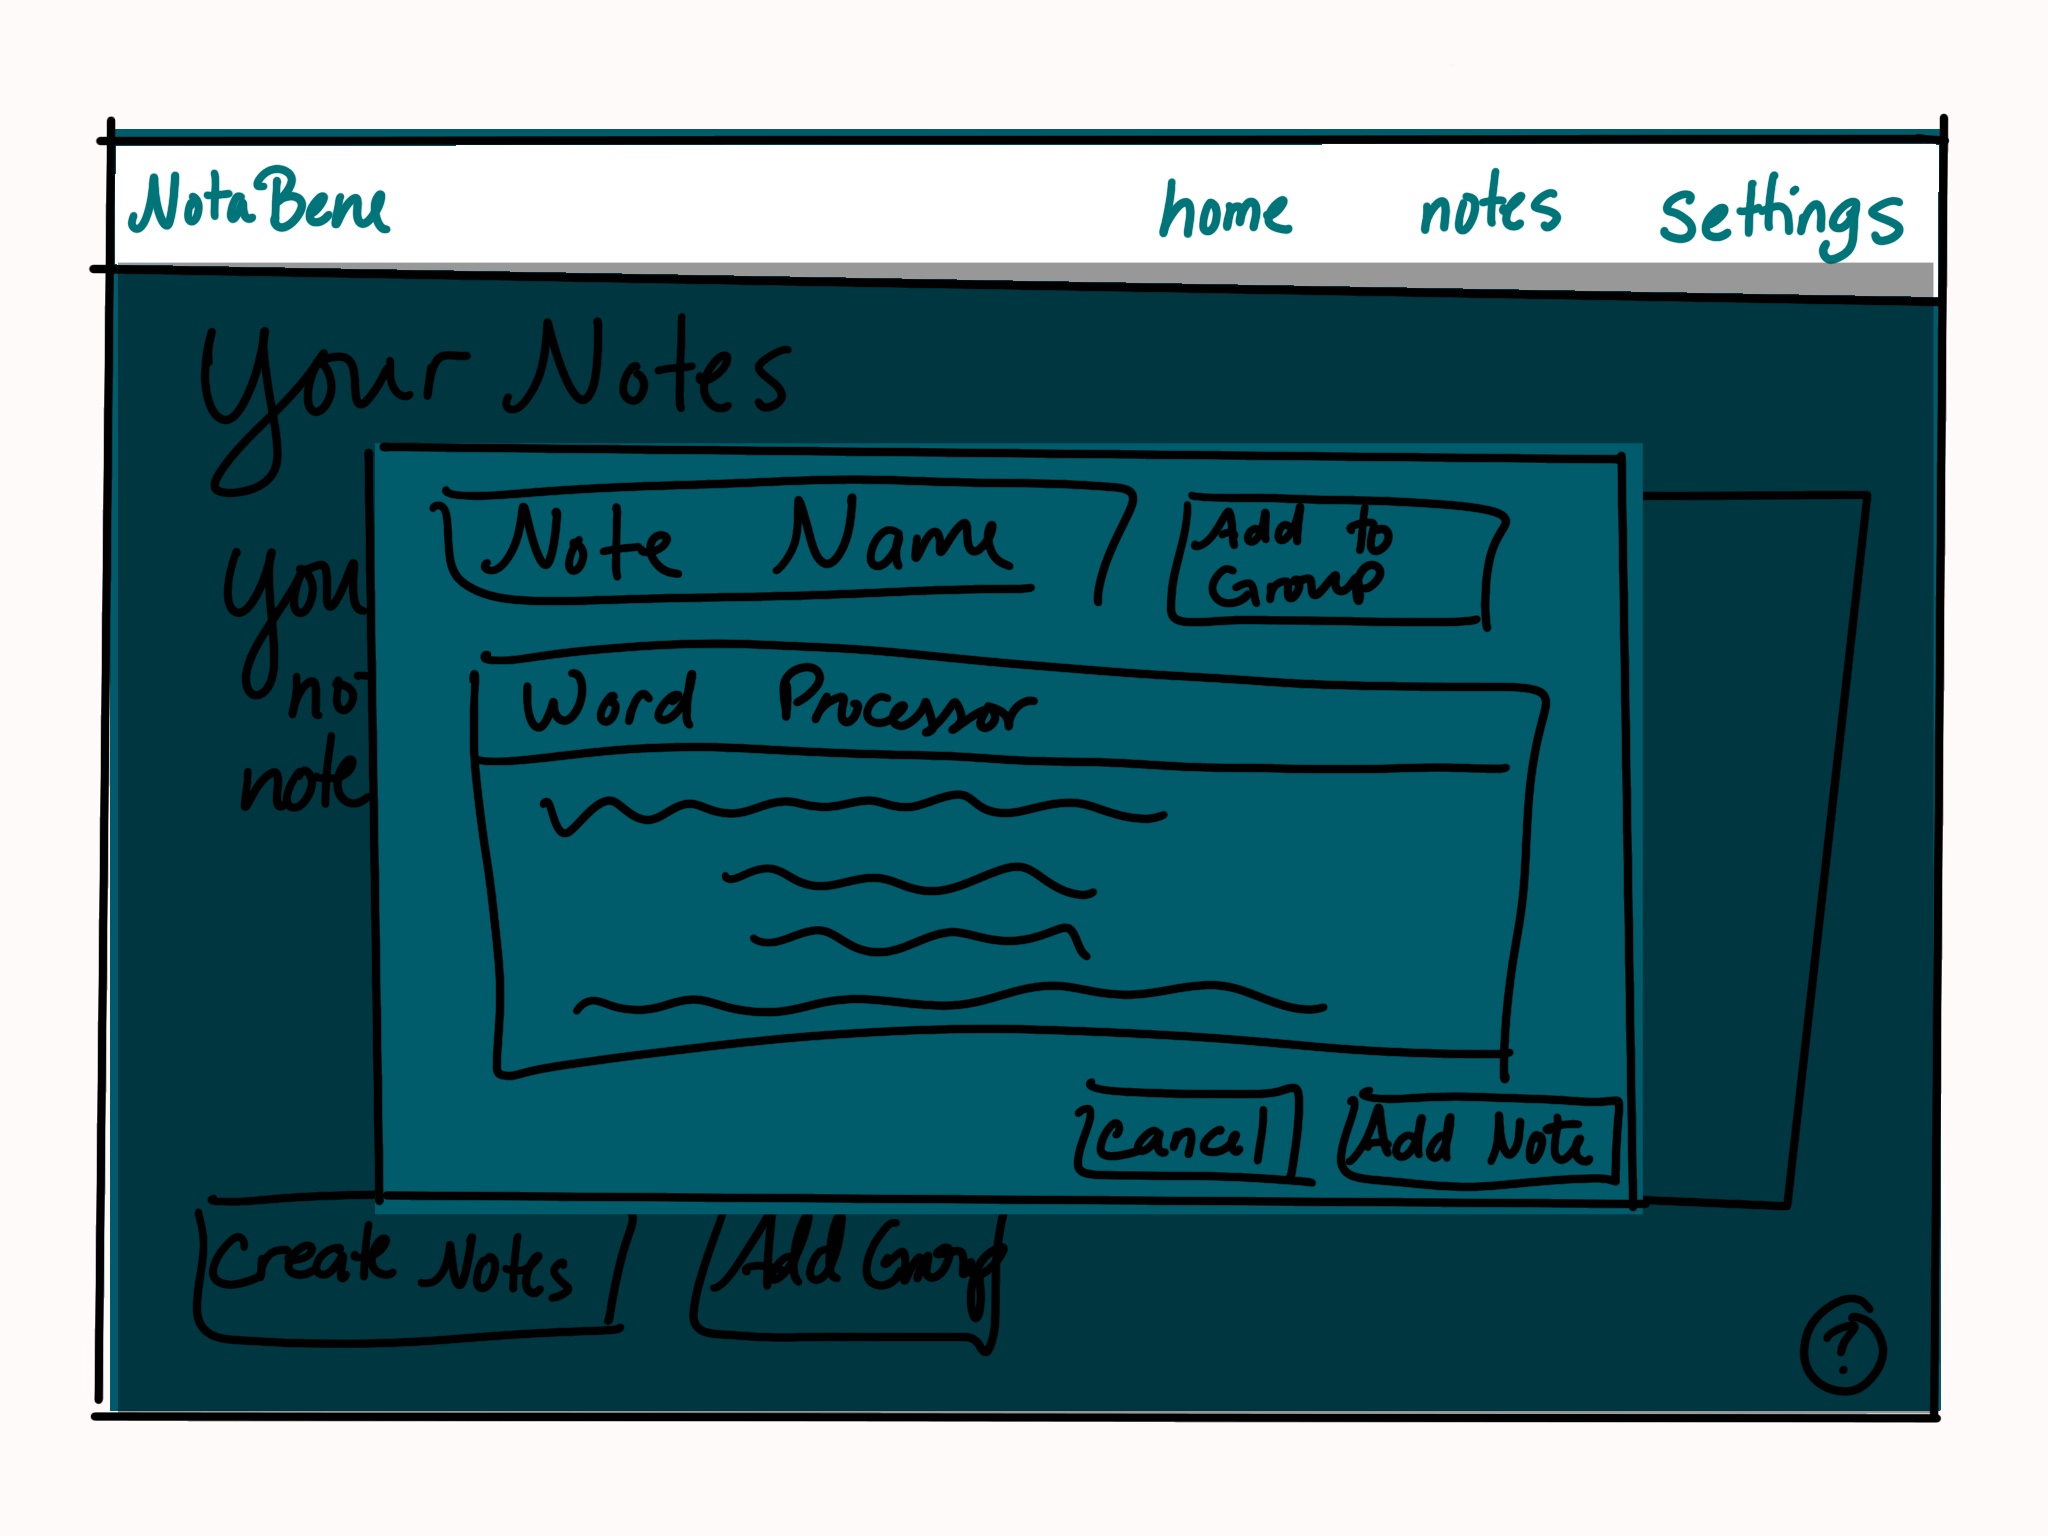 NotaBene home notes settings
Your Notes
Note Name
Add to
Group
you
no
note
Word Processor
Cancel
Add Note
Create Notes
Add Group
?